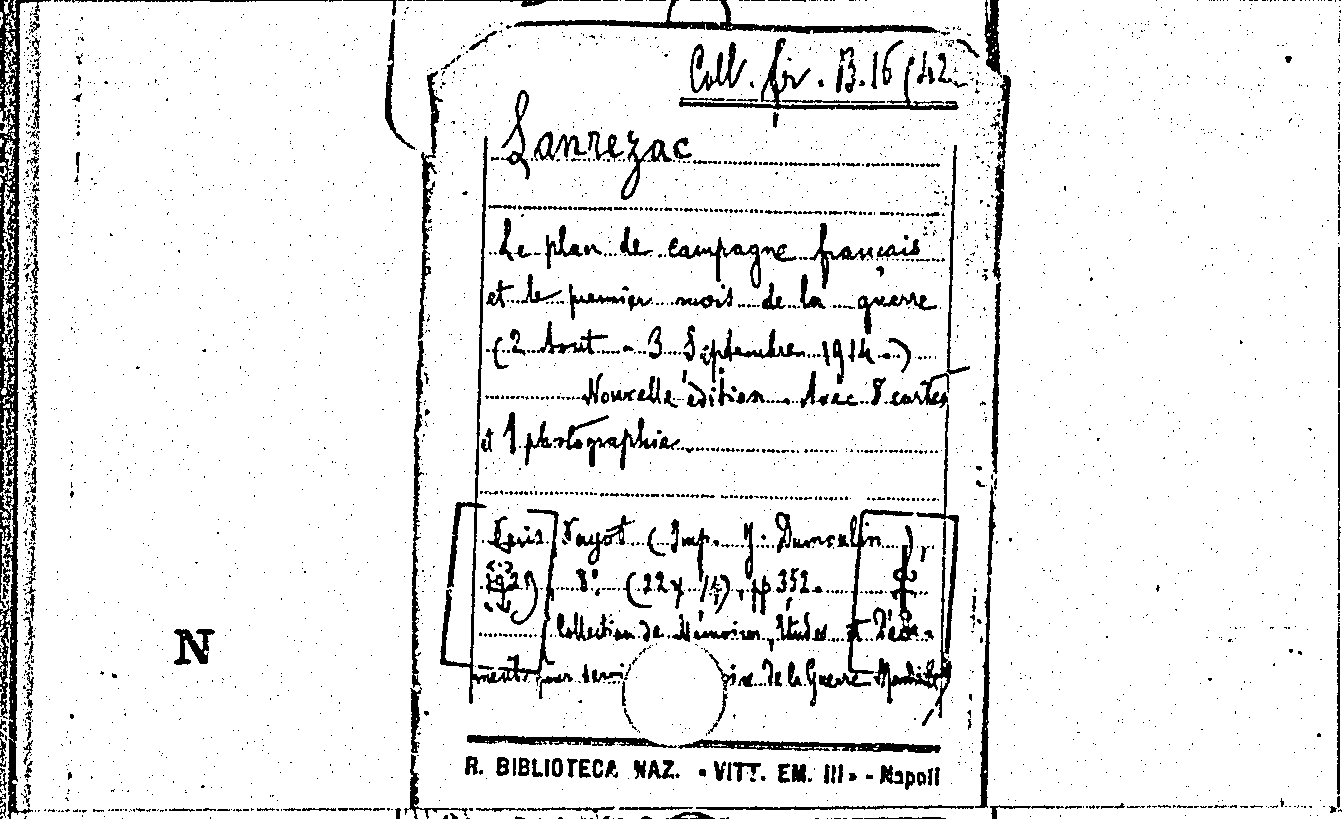 Coll. fir. B. 16 (42
Lanrezac
Le plan de campagne français
et le premier mois de la guerre
(2 Aout - 3 Septembre 1914.)
Nouvelle édition. Avec 8 cartes
et 1 photographie.
Paris, Payot (Imp. J. Dumoulin),
1929, 8°. (22 x 14), pp 352.
(Collection de Mémoires, Études et Docu-
ments pour servi oire de la Guerre Mondiale)
N
R. BIBLIOTECA NAZ. « VITT. EM. III » - Napoli